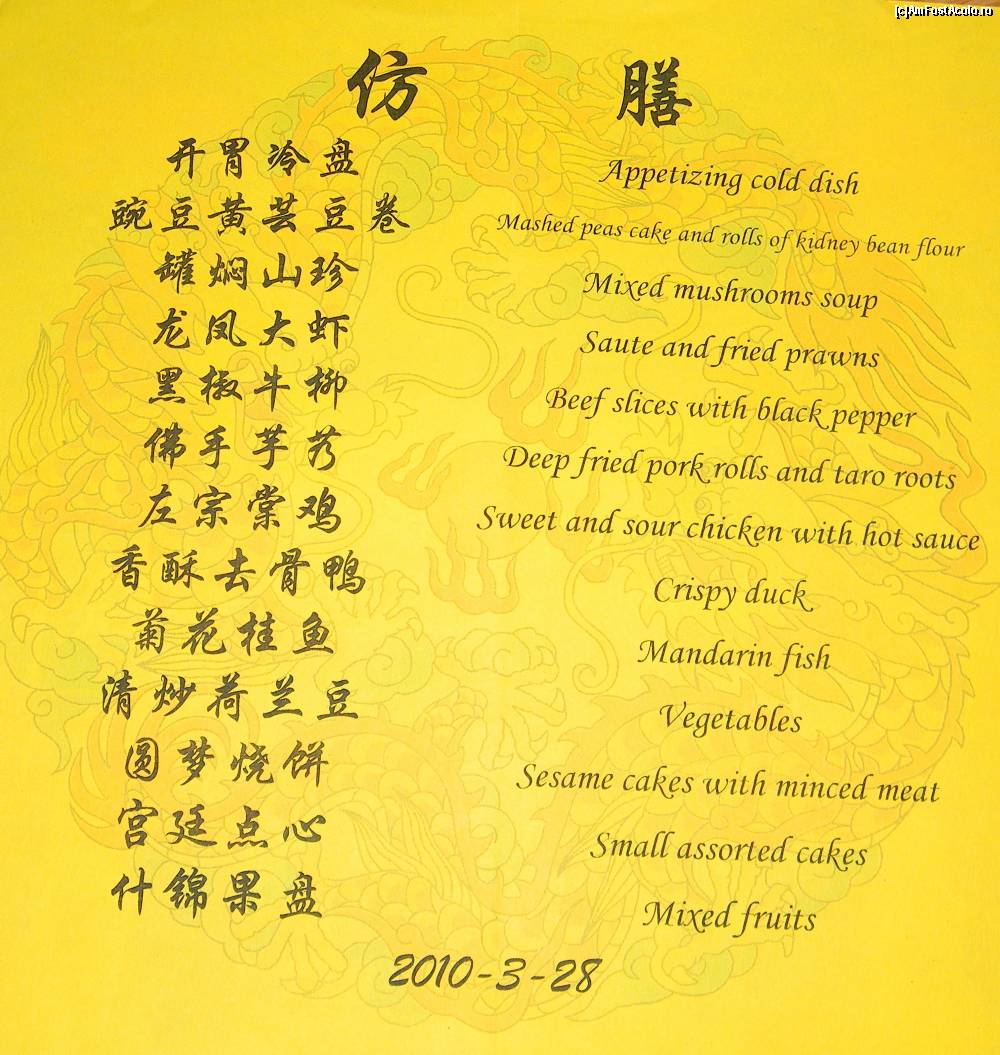 [c]AmFostAcolo.ro
仿 膳
开胃冷盘 Appetizing cold dish
豌豆黄芸豆卷 Mashed peas cake and rolls of kidney bean flour
罐焖山珍 Mixed mushrooms soup
龙凤大虾 Saute and fried prawns
黑椒牛柳 Beef slices with black pepper
佛手芋艿 Deep fried pork rolls and taro roots
左宗棠鸡 Sweet and sour chicken with hot sauce
香酥去骨鸭 Crispy duck
菊花桂鱼 Mandarin fish
清炒荷兰豆 Vegetables
圆梦烧饼 Sesame cakes with minced meat
宫廷点心 Small assorted cakes
什锦果盘 Mixed fruits
2010-3-28